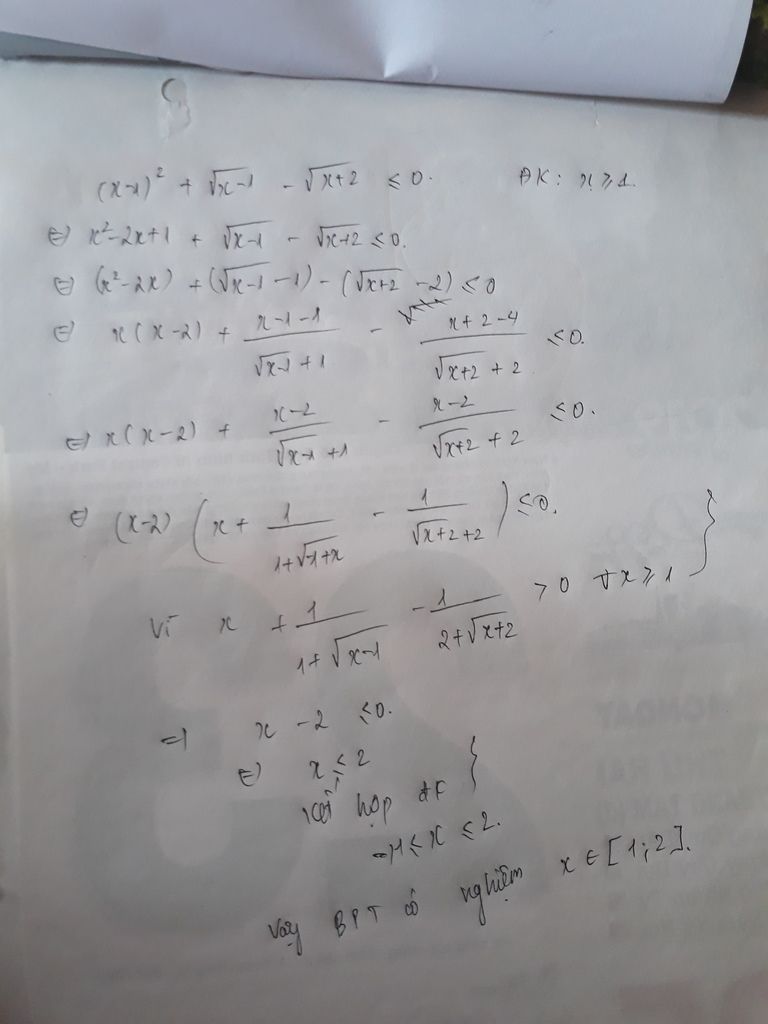 (x-1)² + √x-1 - √x+2 ≤ 0. ĐK: x ≥ 1.
⇔ x²-2x+1 + √x-1 - √x+2 ≤ 0.
⇔ (x²-2x) + (√x-1 -1) - (√x+2 -2) ≤ 0
⇔ x(x-2) + x-1-1 / √x-1 + 1 - x+2-4 / √x+2 + 2 ≤ 0.
⇔ x(x-2) + x-2 / √x-1 + 1 - x-2 / √x+2 + 2 ≤ 0.
⇔ (x-2) (x + 1 / 1+√-1+x - 1 / √x+2+2) ≤ 0.
Vì x + 1 / 1+√x-1 - 1 / 2+√x+2 > 0 ∀x ≥ 1 }
⇒ x - 2 ≤ 0.
⇔ x ≤ 2 }
kết hợp đk
⇒ 1 ≤ x ≤ 2.
Vậy BPT có nghiệm x ∈ [1;2].